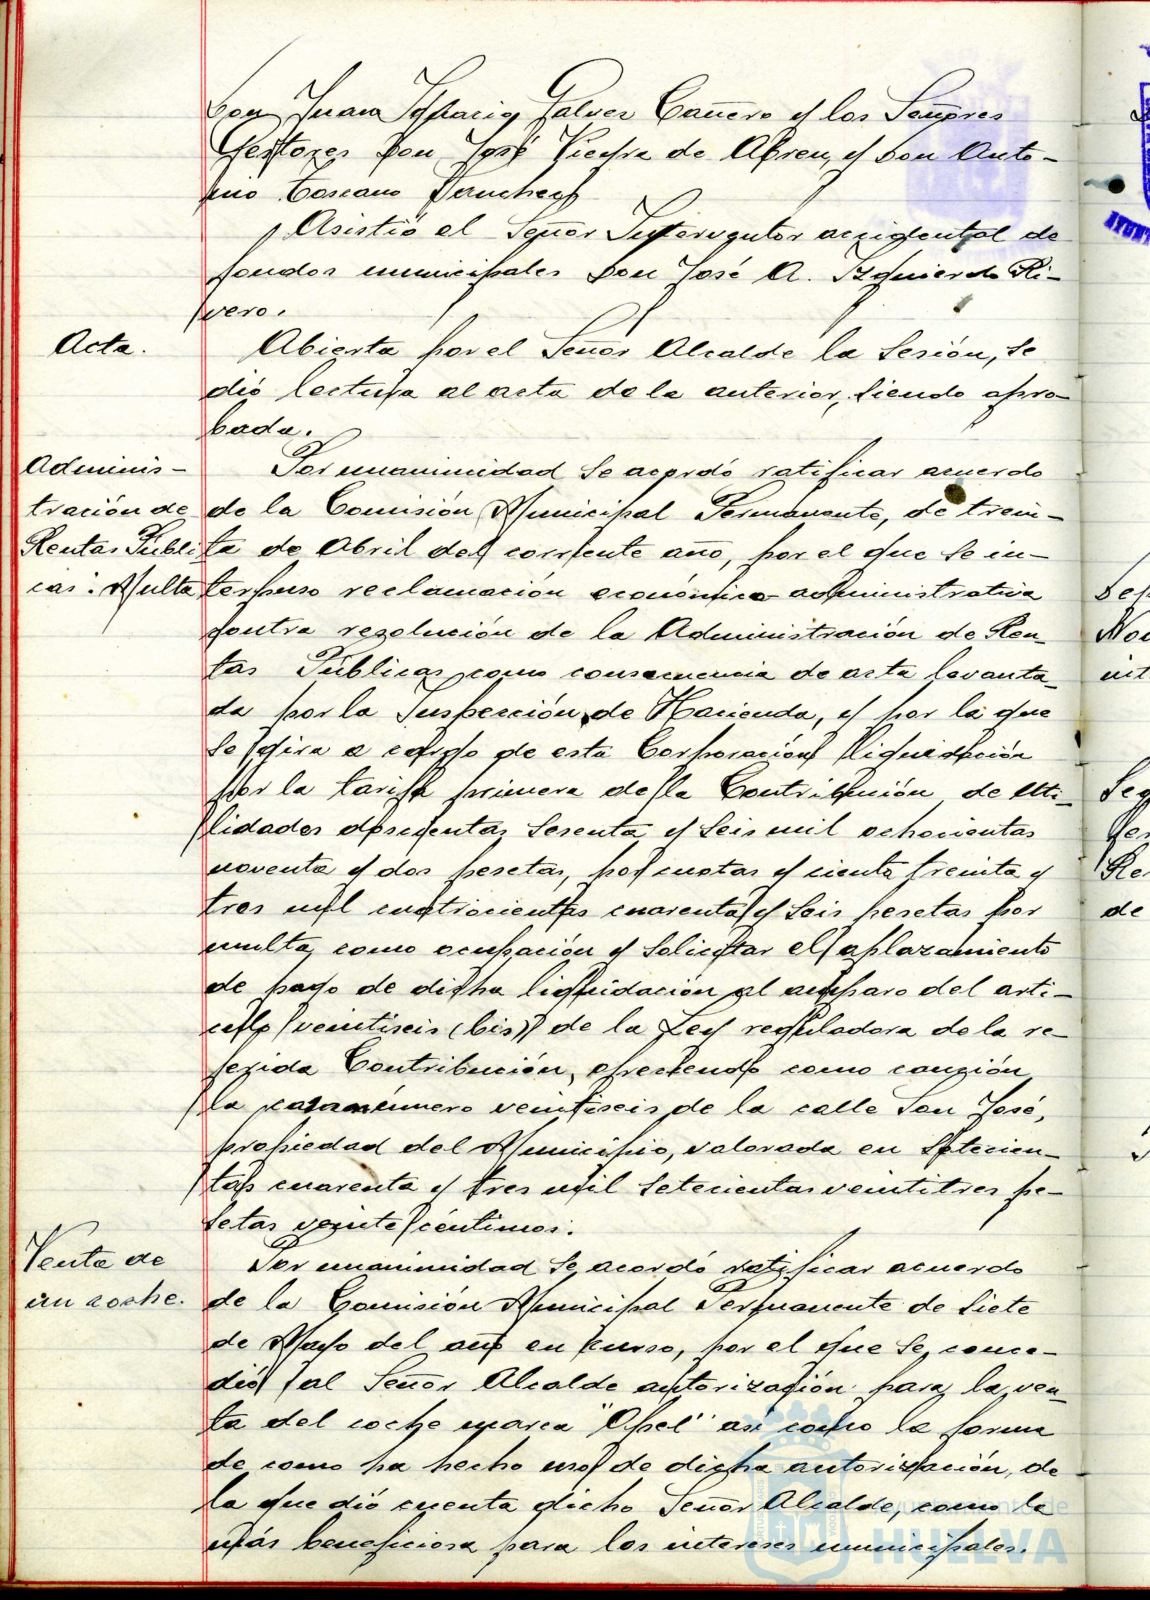 Don Juan Ignacio Galvez Cañero y los Señores
Gestores Don José Piedra de Abreu, y Don Anto-
nio Toscano Sanchez
Asistió el Señor Interventor accidental de
fondos municipales Don José A. Izquierdo Ri-
vero.
Acta.
Abierta por el Señor Alcalde la Sesión, se
dió lectura al acta de la anterior, siendo apro-
bada.
Adminis-
tración de
Rentas Públi
cas: Multa
Por unanimidad se acordó ratificar acuerdo
de la Comisión Municipal Permanente, de trein-
ta de Abril del corriente año, por el que se in-
terpuso reclamación económico administrativa
contra resolución de la Administración de Ren-
tas Públicas, como consecuencia de acta levanta-
da por la Inspección de Hacienda, y por la que
se gira a cargo de esta Corporación liquidación
por la tarifa primera de la Contribución de Uti-
lidades doscientas sesenta y seis mil ochocientas
noventa y dos pesetas, por cuotas y ciento treinta y
tres mil cuatrocientas cuarenta y seis pesetas por
multa, como ocupación y solicitar el aplazamiento
de pago de dicha liquidación al amparo del arti-
culo veintiseis (bis) de la Ley reguladora de la re-
ferida Contribución, ofreciendo como caución
la casa número veintiseis de la calle San José,
propiedad del Municipio, valorada en setecien-
tas cuarenta y tres mil setecientas veintitres pe-
setas veinte céntimos.
Venta de
un coche.
Por unanimidad se acordó ratificar acuerdo
de la Comisión Municipal Permanente de siete
de Mayo del año en curso, por el que se conce-
dió al Señor Alcalde autorización para la ven-
ta del coche marca "Opel" asi como la forma
de como ha hecho uso de dicha autorización, de
la que dió cuenta dicho Señor Alcalde, como la
más beneficiosa para los intereses municipales.
Ayuntamiento de
HUELVA